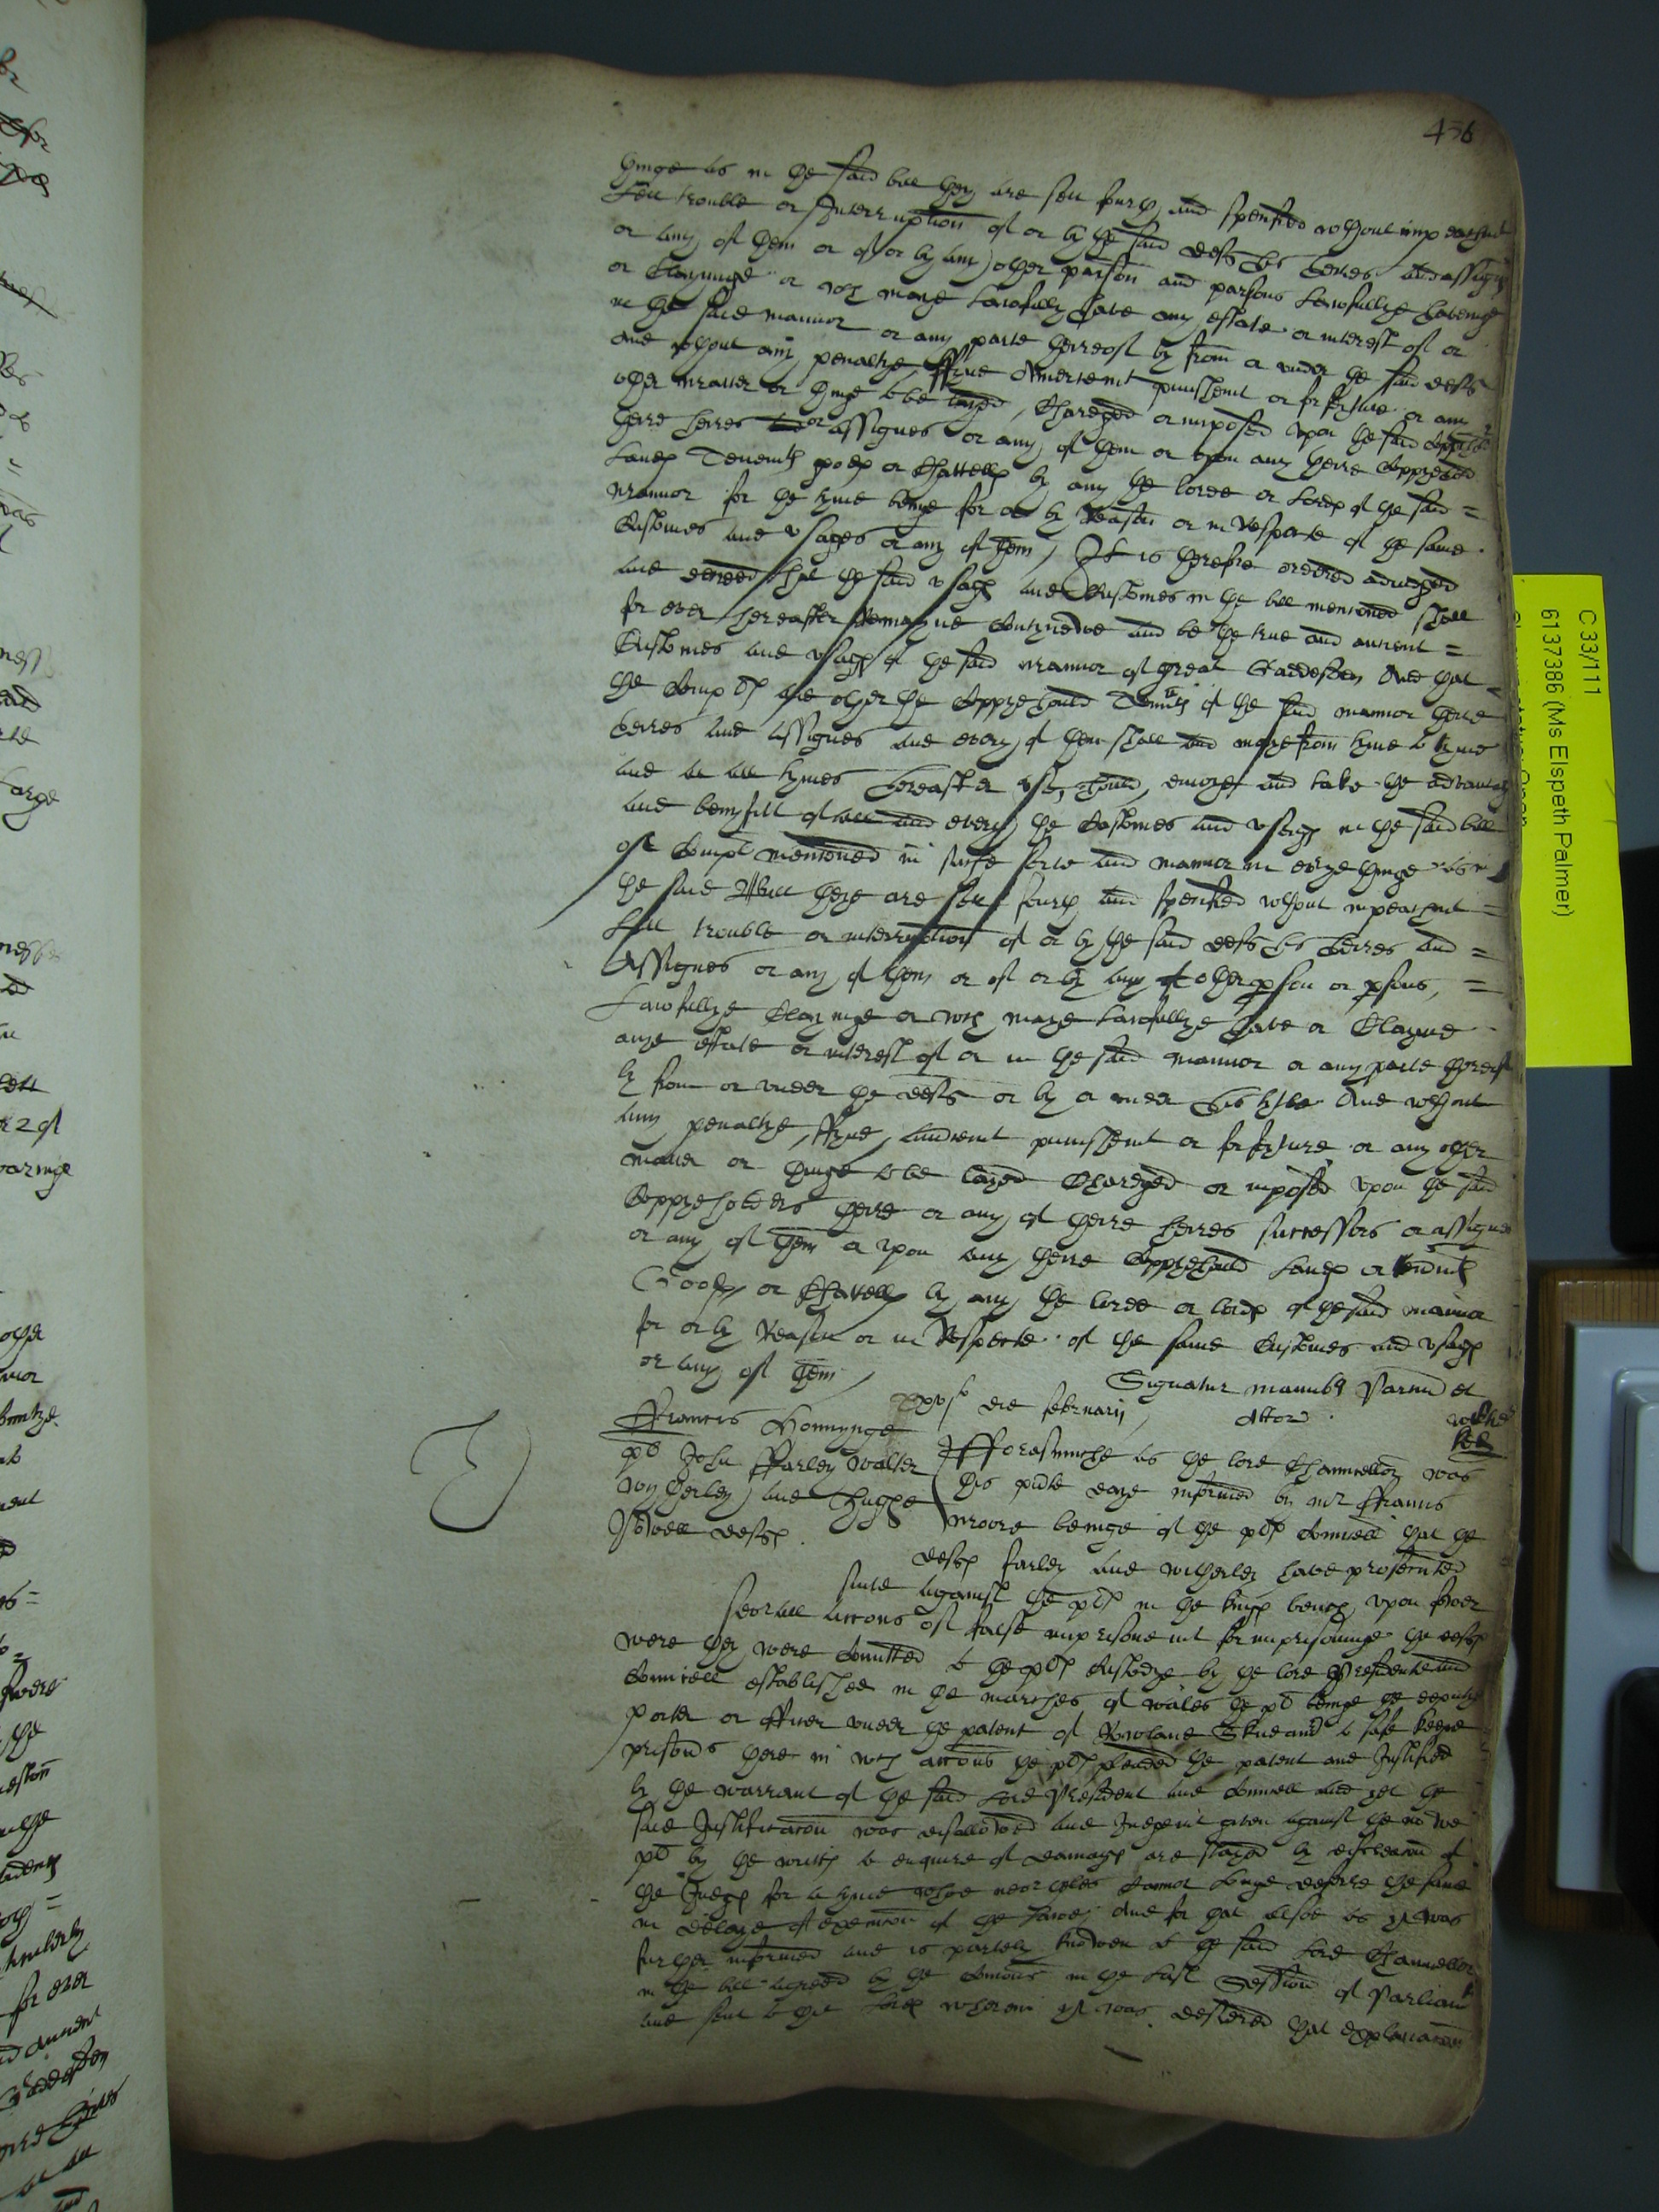 456
thinge as in the said bill they are sett furth and specified wthout impeachmt
Lett trouble or Interruption of or by the said deft his heires and assignes
or any of them or of or by any other parson and parsons Lawfullye haveinge
or Clayminge or wch maye Lawfully have any estate or interest of or
in the said mannor or any parte thereof by from or under the said deft
and wthout any penaltye ffyne Amercemt punishemt or forfeyture or any
other matter or thinge to be layed, Chardged or imposed vpon the said
there heires or assignes or any of them or vpon any there Coppyehold
Landes Tenemtes goodes or Chattelles by any the lorde or Lordes of the said =
mannor for the tyme beinge for or by Reason or in Respecte of the same
Customes and vsages or any of them, It is therefore ordered adiudged
and decreed that the said vsages and Customes in the bill mencioned shall
for ever hereafter Remayne Contynewe and be the true and auncient =
Customes and vsages of the said mannor of great Gaddesden And that =
the Compltes and other the Coppyehould Tennntes of the said mannor there
heires and Assignes and every of them shall and maye from tyme to tyme
and at all tymes hereafter vse, hould, enioye and take the advantage
and benyfitt of all and every the Customes and vsages in the said bill
of Complt mencioned in suche sorte and manner in everye thinge as in
the said bill they are sett furth and specified wthout impeachmt =
Lett trouble or interruption of or by the said deft his heires and =
Assignes or any of them or of or by any other pson or psons, =
Lawfullye Clayminge or wch maye Lawfullye have or Clayme
anye estate or interest of or in the said mannor or any parte thereof
by from or vnder the deft or by or vnder his tytle And wthout
any penaltye, ffyne, amercemt punishemt or forfeyture or any other
matter or thinge to be layed Chardged or imposed vpon the said
Coppyeholders there or any of there heires successors or assignes
or any of them or vpon any there Coppyehould Landes or tenemtes
Goodes or Chattelles by any the lorde or lordes of the said mannor
for or by Reason or in Respecte of the same Customes and vsages
or any of them,
Signatur manubs Parciu et
Attorn
die februarij,
ffrancis
pl John ffarley Walter
and Hughe
deftes.
Fforasmuche as the lord Chauncellor was
this pnte daye informed by mr ffrauncis
moore beinge of the pltes Councell that the
deftes farley and have prosecuted
suite against the plt in the kinges bench vpon fower
severall accons of false imprisonemt for imprisoninge the deftes
were they were Comitted to the pltes Custodye by the lord Presidente and
Councell established in the marches of wales the pl beinge the deputye
porter or officer vnder the patent of Rowland to safe keepe
prisoners there in wch accons the plt pleaded the patent and Justified
by the warrant of the said Lord President and Councell and yet the
said Justificacon was disallowed and Judgemt given against the nowe
pl by the writtes to enquire of damages are stayed by discreacon of
the Judges for a tyme whoe neverthles Cannot longe deferre the same
in delaye of execucon of the Lawe, And for that alsoe as yt was
further informed and is partely knowen to the said Lord Chauncellor
in the bill agreed by the Comons in the Last Session of Parliamt
and sent to the Lordes wherein yt was desiered that explanacon
C 33/111
6137386 (Ms Elspeth Palmer)